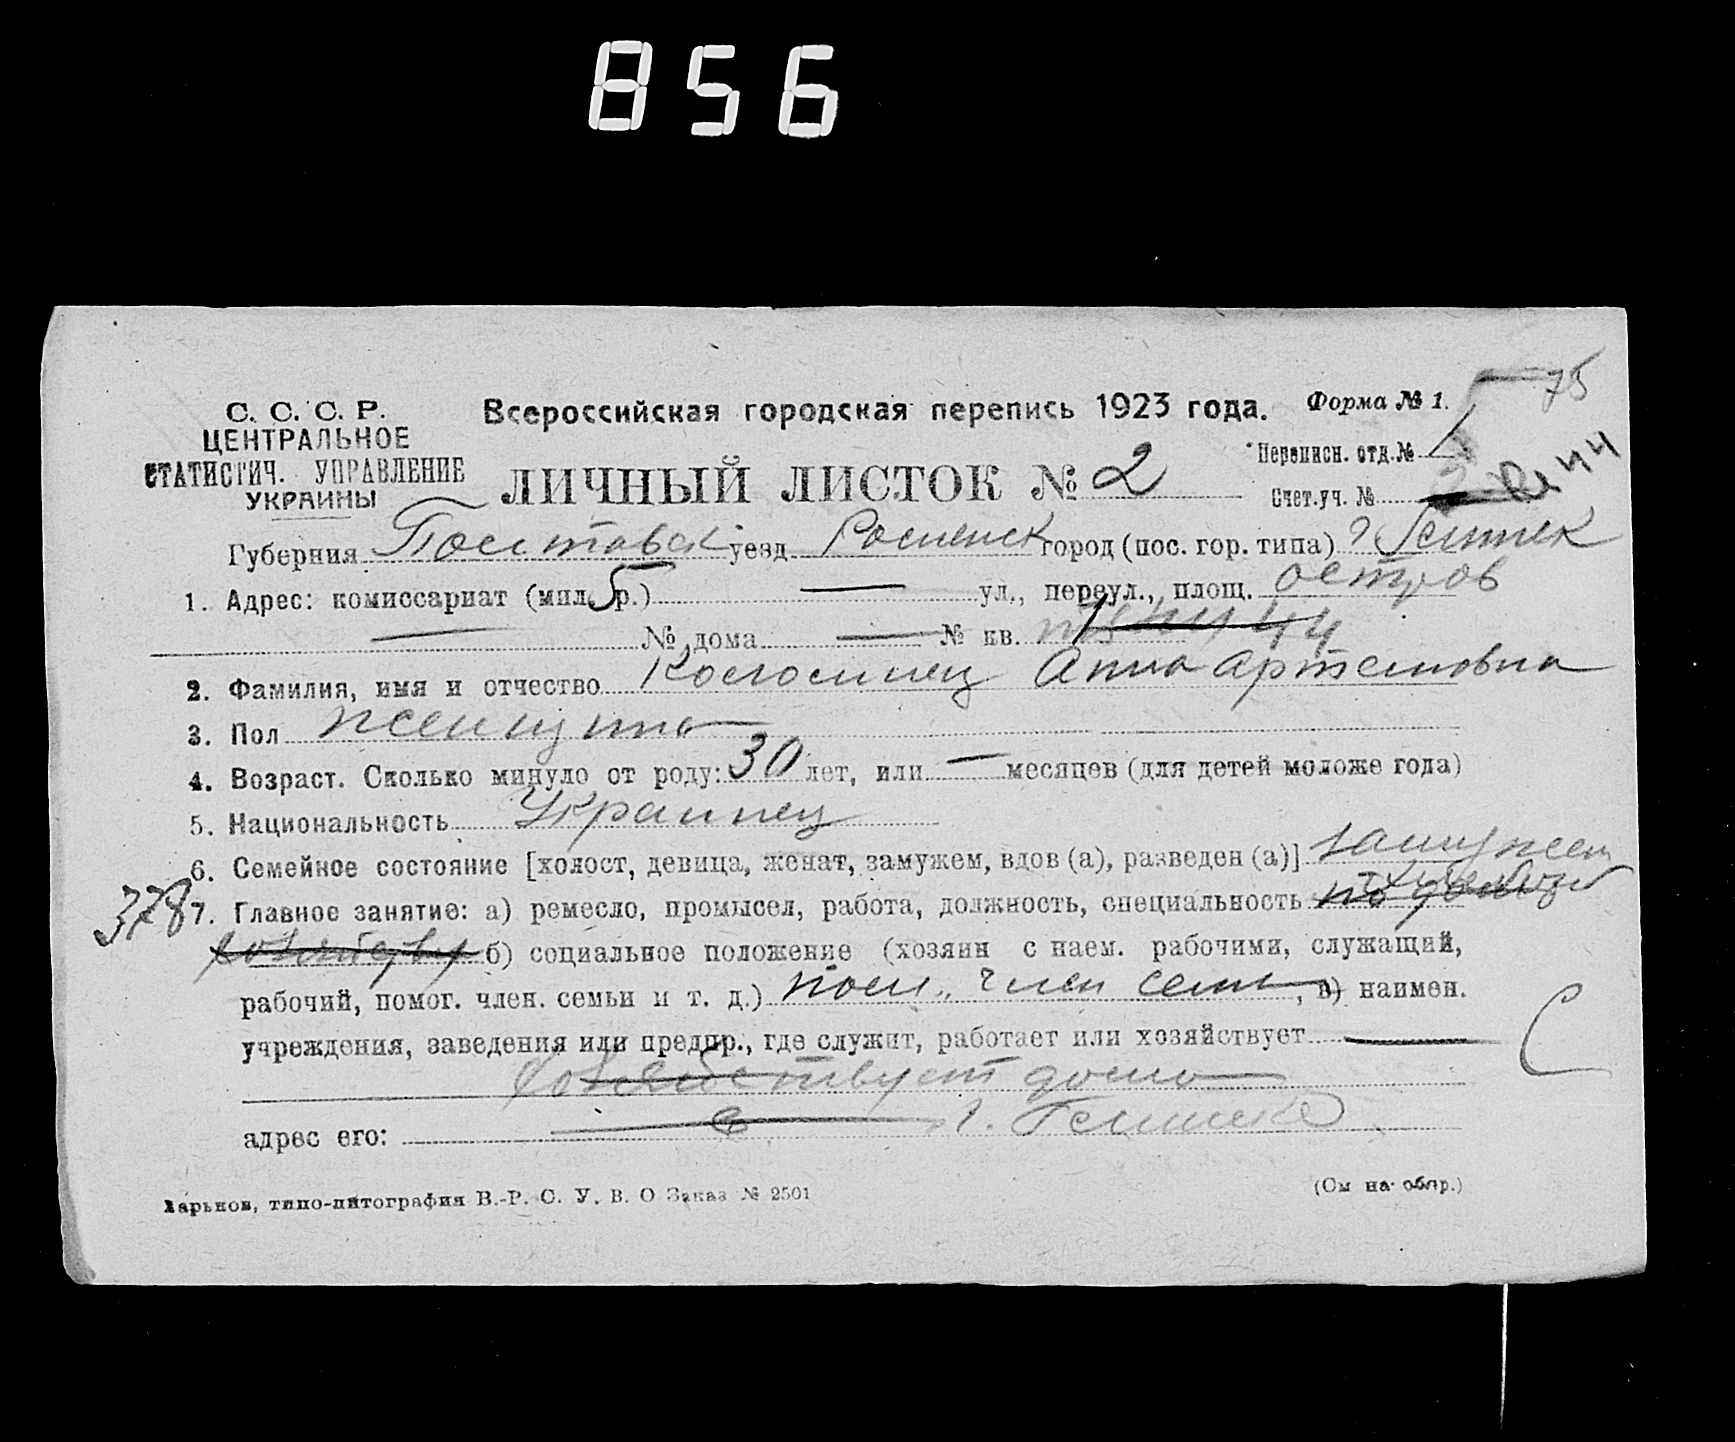 856
75
С. С. С. Р.
ЦЕНТРАЛЬНОЕ
СТАТИСТИЧ. УПРАВЛЕНИЕ
УКРАИНЫ
Всероссийская городская перепись 1923 года.
Форма № 1.
ЛИЧНЫЙ ЛИСТОК № 2
Переписн. отд. №
Счет. уч. №
Губерния Полтавск уезд Роменск город (пос. гор. типа)
1. Адрес: комиссариат (мил. р.) 5 — ул., переул., площ. остров
— № дома — № кв. 44
2. Фамилия, имя и отчество Анна Артемовна
3. Пол женщина
4. Возраст. Сколько минуло от роду: 30 лет, или — месяцев (для детей моложе года)
5. Национальность Украинец
6. Семейное состояние [холост, девица, женат, замужем, вдов (а), разведен (а)] замужем
378 7. Главное занятие: а) ремесло, промысел, работа, должность, специальность
хозяйству б) социальное положение (хозяин с наем. рабочими, служащий,
рабочий, помог. член. семьи и т. д.) пом. член семьи, в) наимен.
учреждения, заведения или предпр., где служит, работает или хозяйствует —
С
хозяйствует дома
адрес его: —
Харьков, типо-литография В.-Р. С. У. В. О Заказ № 2501
(См на обор.)